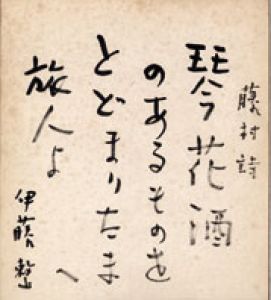 藤村詩
琴花酒
のあるものを
とどまりたま
へ
旅人よ
伊藤整